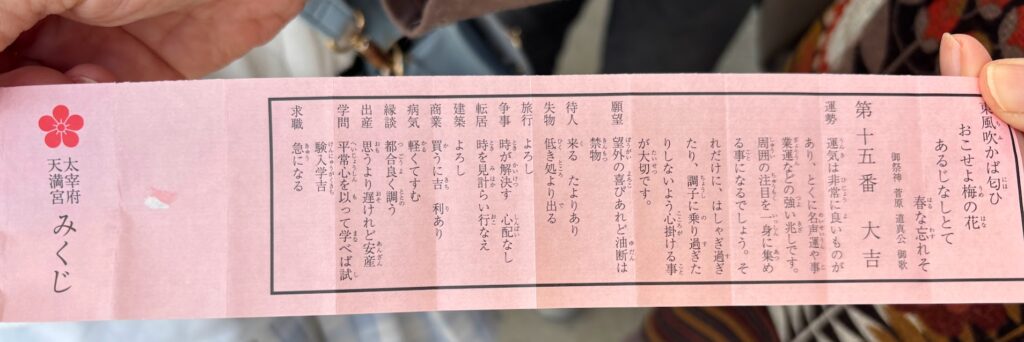 東風吹かば匂ひ
おこせよ梅の花
あるじなしとて
春な忘れそ
御祭神 菅原 道真公 御歌
第十五番 大吉
運勢 運気は非常に良いものが
あり、とくに名声運や事
業運などの強い兆しです。
周囲の注目を一身に集め
る事になるでしょう。そ
れだけに、はしゃぎ過ぎ
たり、調子に乗り過ぎた
りしないよう心掛ける事
が大切です。
願望 望外の喜びあれど油断は
禁物
待人 来る たよりあり
失物 低き処より出る
旅行 よろし
争事 時が解決す 心配なし
転居 時を見計らい行なえ
建築 よろし
商業 買うに吉 利あり
病気 軽くてすむ
縁談 都合良く調う
出産 思うより遅けれど安産
学問 平常心を以って学べば試
験入学吉
求職 急になる
太宰府
天満宮 みくじ